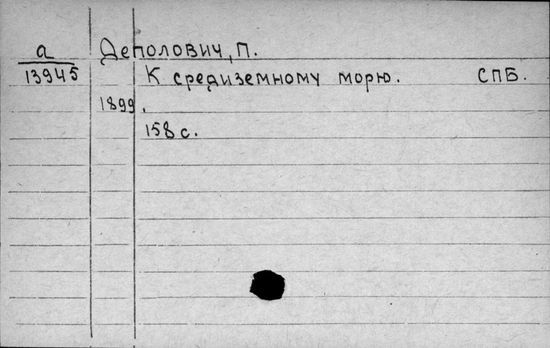 а Деполович, П.
13945 К средиземному морю. СПБ.
1899.
158 с.